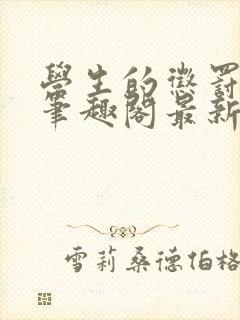 學生的懲罰
筆趣閣最新
雪莉桑德伯格